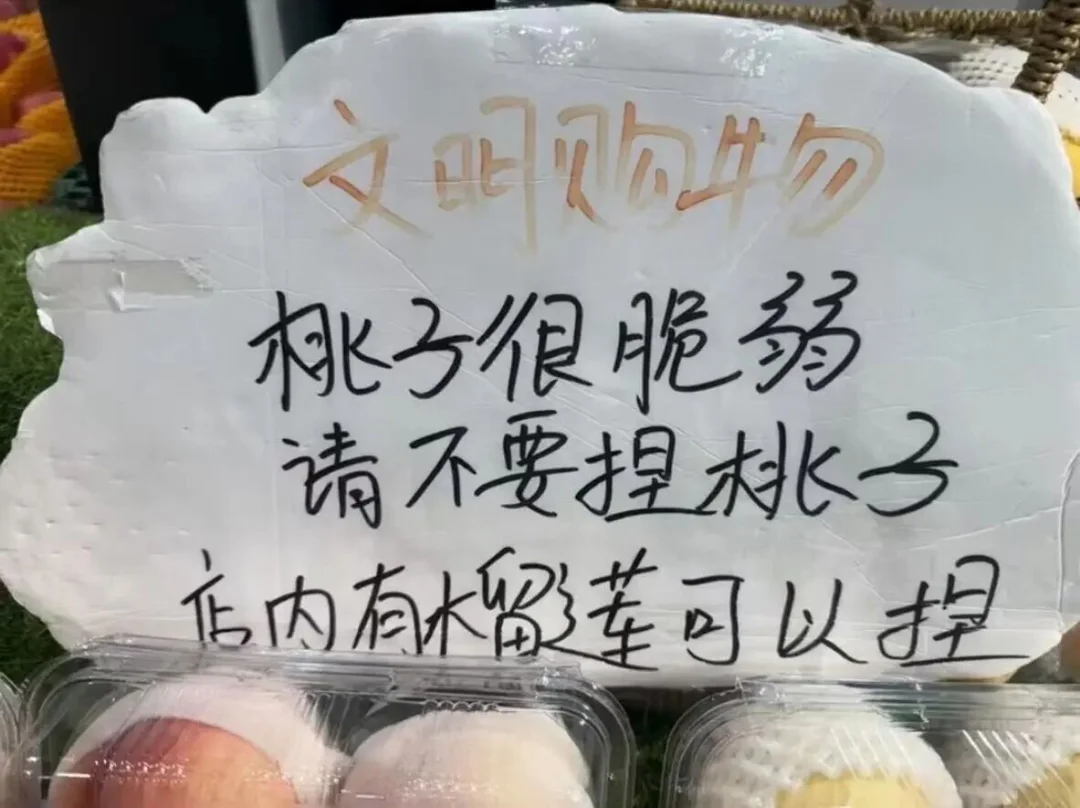 文明购物
桃子很脆弱
请不要捏桃子
店内有榴莲可以捏